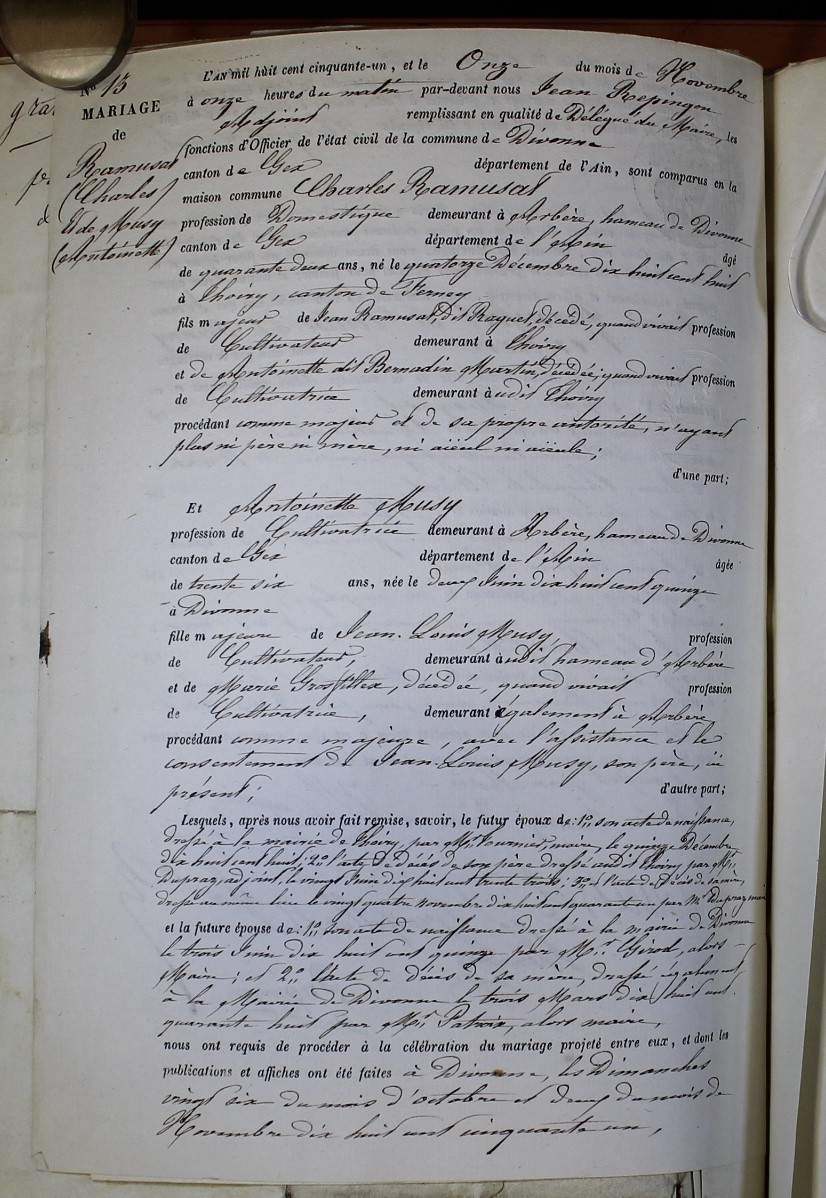 N° 13
MARIAGE
de
Ramusat
(Charles)
Et de Musy
(Antoinette)
L'AN mil huit cent cinquante-un, et le Onze du mois de Novembre
à onze heures du matin par-devant nous Jean Repingon
Adjoint remplissant en qualité de Délégué du Maire, les
fonctions d'Officier de l'état civil de la commune de Divonne
canton de Gex département de l'Ain, sont comparus en la
maison commune Charles Ramusat
profession de Domestique demeurant à Arbère, hameau de Divonne
canton de Gex département de l'Ain âgé
de quarante deux ans, né le quatorze Décembre dix huit cent huit
à Thoiry, canton de Ferney
fils majeur de Jean Ramusat, dit Raguet, décédé, quand vivait profession
de Cultivateur demeurant à Thoiry
et de Antoinette dit Bernadin Martin, décédée, quand vivait profession
de Cultivatrice demeurant audit Thoiry
procédant comme majeur et de sa propre autorité, n'ayant
plus ni père ni mère, ni aïeul ni aïeule;
d'une part;
Et Antoinette Musy
profession de Cultivatrice demeurant à Arbère, hameau de Divonne
canton de Gex département de l'Ain âgée
de trente six ans, née le deux Juin dix huit cent quinze
à Divonne
fille majeure de Jean-Louis Musy, profession
de Cultivateur, demeurant audit hameau d'Arbère
et de Marie Grosfillex, décédée, quand vivait profession
de Cultivatrice, demeurant également à Arbère
procédant comme majeure, avec l'assistance et le
consentement de Jean-Louis Musy, son père, ici
présent; d'autre part;
Lesquels, après nous avoir fait remise, savoir, le futur époux de: 1° son acte de naissance,
dressé à la mairie de Thoiry, par Mr. Fournier, maire, le quinze Décembre
dix huit cent huit; 2° l'acte de Décès de son père dressé audit Thoiry par Mr.
Dupraz, adjoint, le vingt Juin dix huit cent trente trois; 3° et l'acte de Décès de sa mère,
dressé au même lieu le vingt quatre novembre dix huit cent quarante un par Mr. Dupraz maire
et la future épouse de: 1° son acte de naissance dressé à la mairie de Divonne
le trois Juin dix huit cent quinze par Mr. Girod, alors
Maire; et 2° l'acte de décès de sa mère, dressé également
à la Mairie de Divonne le trois Mars dix huit cent
quarante huit par Mr. Patroix, alors maire,
nous ont requis de procéder à la célébration du mariage projeté entre eux, et dont les
publications et affiches ont été faites à Divonne, les Dimanches
vingt six du mois d'octobre et deux du mois de
Novembre dix huit cent cinquante un,